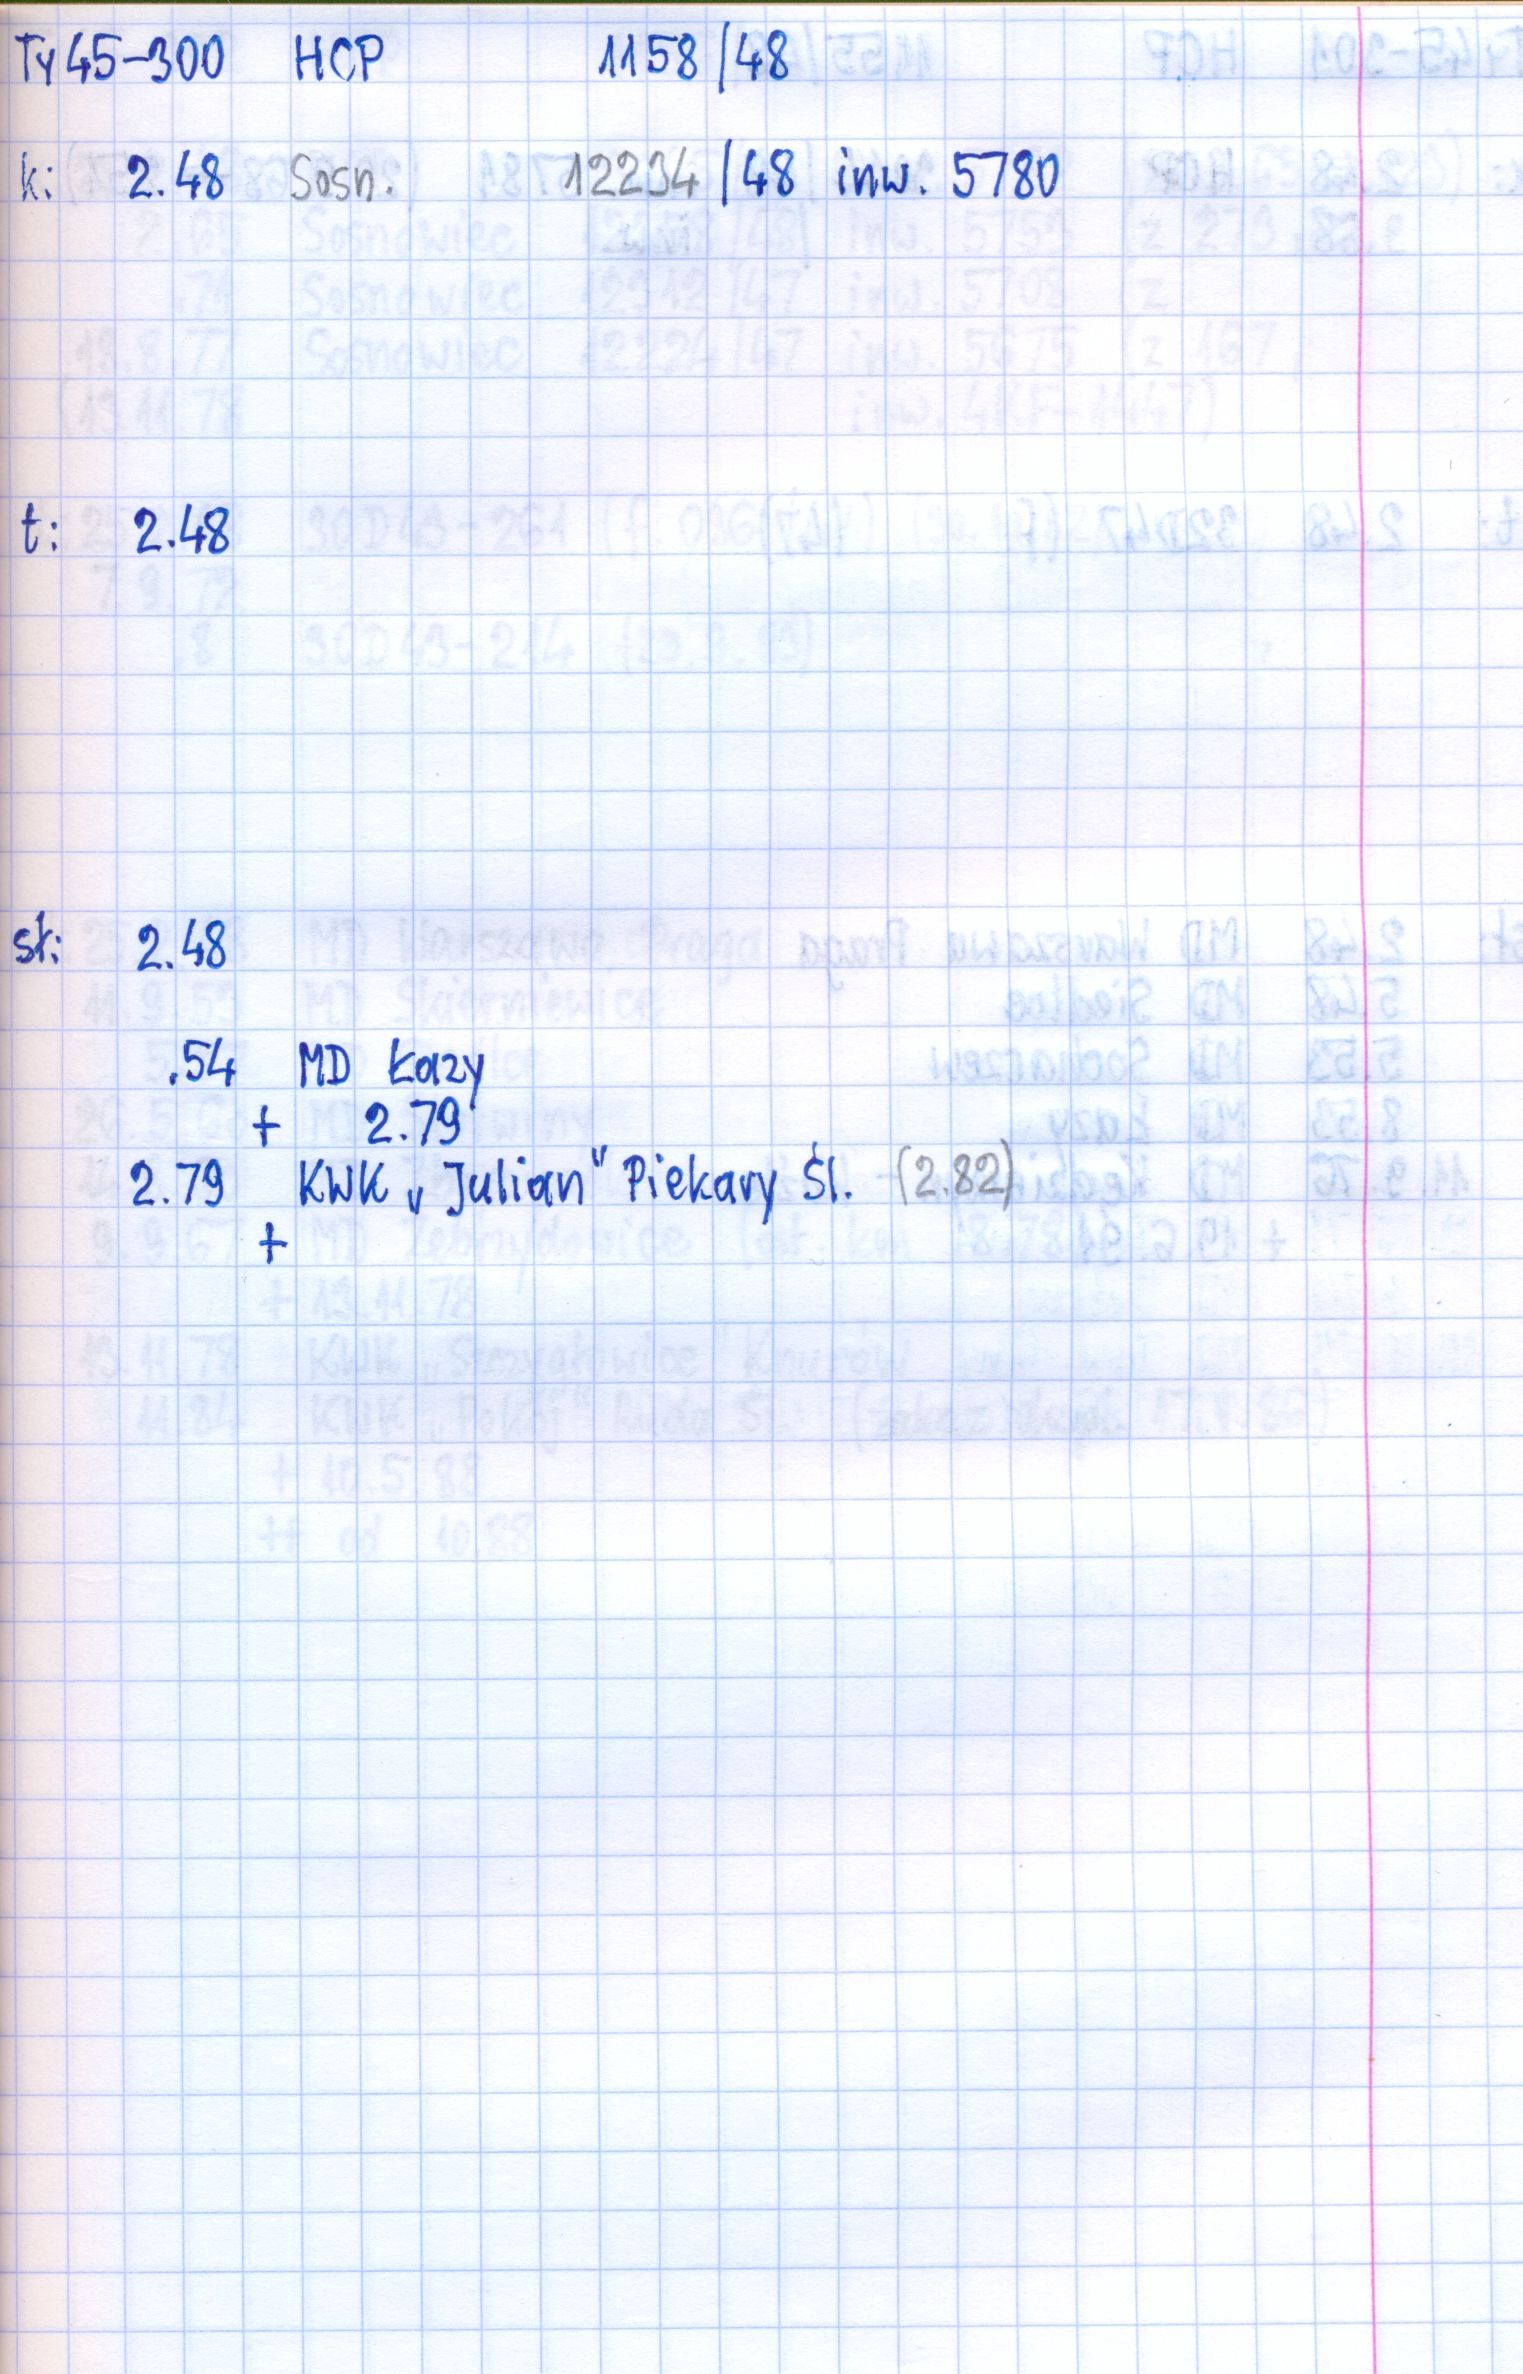 Ty45-300 HCP 1158/48
k: 2.48 Sosn. 12234/48 inw. 5780
t: 2.48
st: 2.48
.54 MD Łazy
+ 2.79
2.79 KWK „Julian" Piekary Śl. (2.82)
+